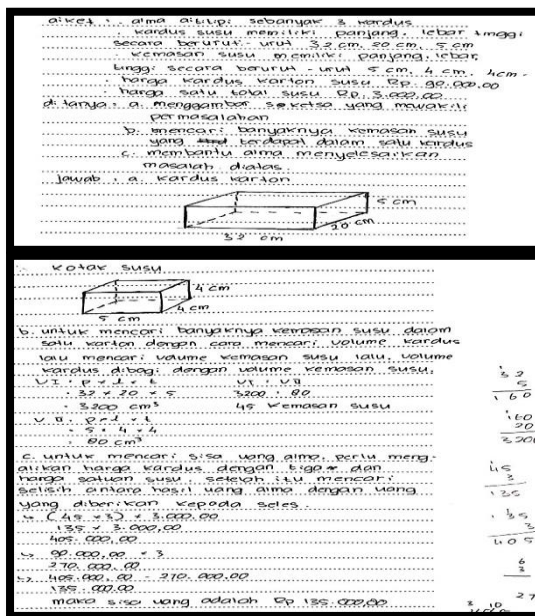 diket : . alma dititipi sebanyak 3 kardus
. kardus susu memiliki panjang, lebar tinggi
secara berurut-urut 32 cm, 20 cm, 5 cm
. kemasan susu memiliki panjang, lebar,
tinggi secara berurut-urut 5 cm, 4 cm, 4cm.
. harga kardus karton susu Rp. 90.000,00
. harga satu susu Rp. 3.000,00
ditanya : a. menggambar sketsa yang mewakili
permasalahan
b. mencari banyaknya kemasan susu
yang terdapat dalam satu kardus
c. membantu alma menyelesaikan
masalah diatas
jawab : a. kardus karton
5 cm
20 cm
32 cm
kotak susu
4 cm
4 cm
5 cm
b. untuk mencari banyaknya kemasan susu dalam
satu karton dengan cara mencari volume kardus
lalu mencari volume kemasan susu lalu, volume
kardus dibagi dengan volume kemasan susu.
V I : p × l × t
VI : VII
: 32 × 20 × 5
3200 : 80
: 3200 cm³
45 kemasan susu
V II : p × l × t
: 5 × 4 × 4
: 80 cm³
32
5
160
160
20
3200
c. untuk mencari sisa uang alma, perlu meng-
alikan harga kardus dengan tiga dan
harga satuan susu setelah itu mencari
selisih antara hasil uang alma dengan uang
yang diberikan kepada seles.
↳ (45 × 3) × 3.000,00
135 × 3.000,00
405.000,00
↳ 90.000,00 × 3
270.000,00
↳ 405.000,00 - 270.000,00
135.000,00
maka sisa uang adalah Rp 135.000,00
45
3
135
135
3
405